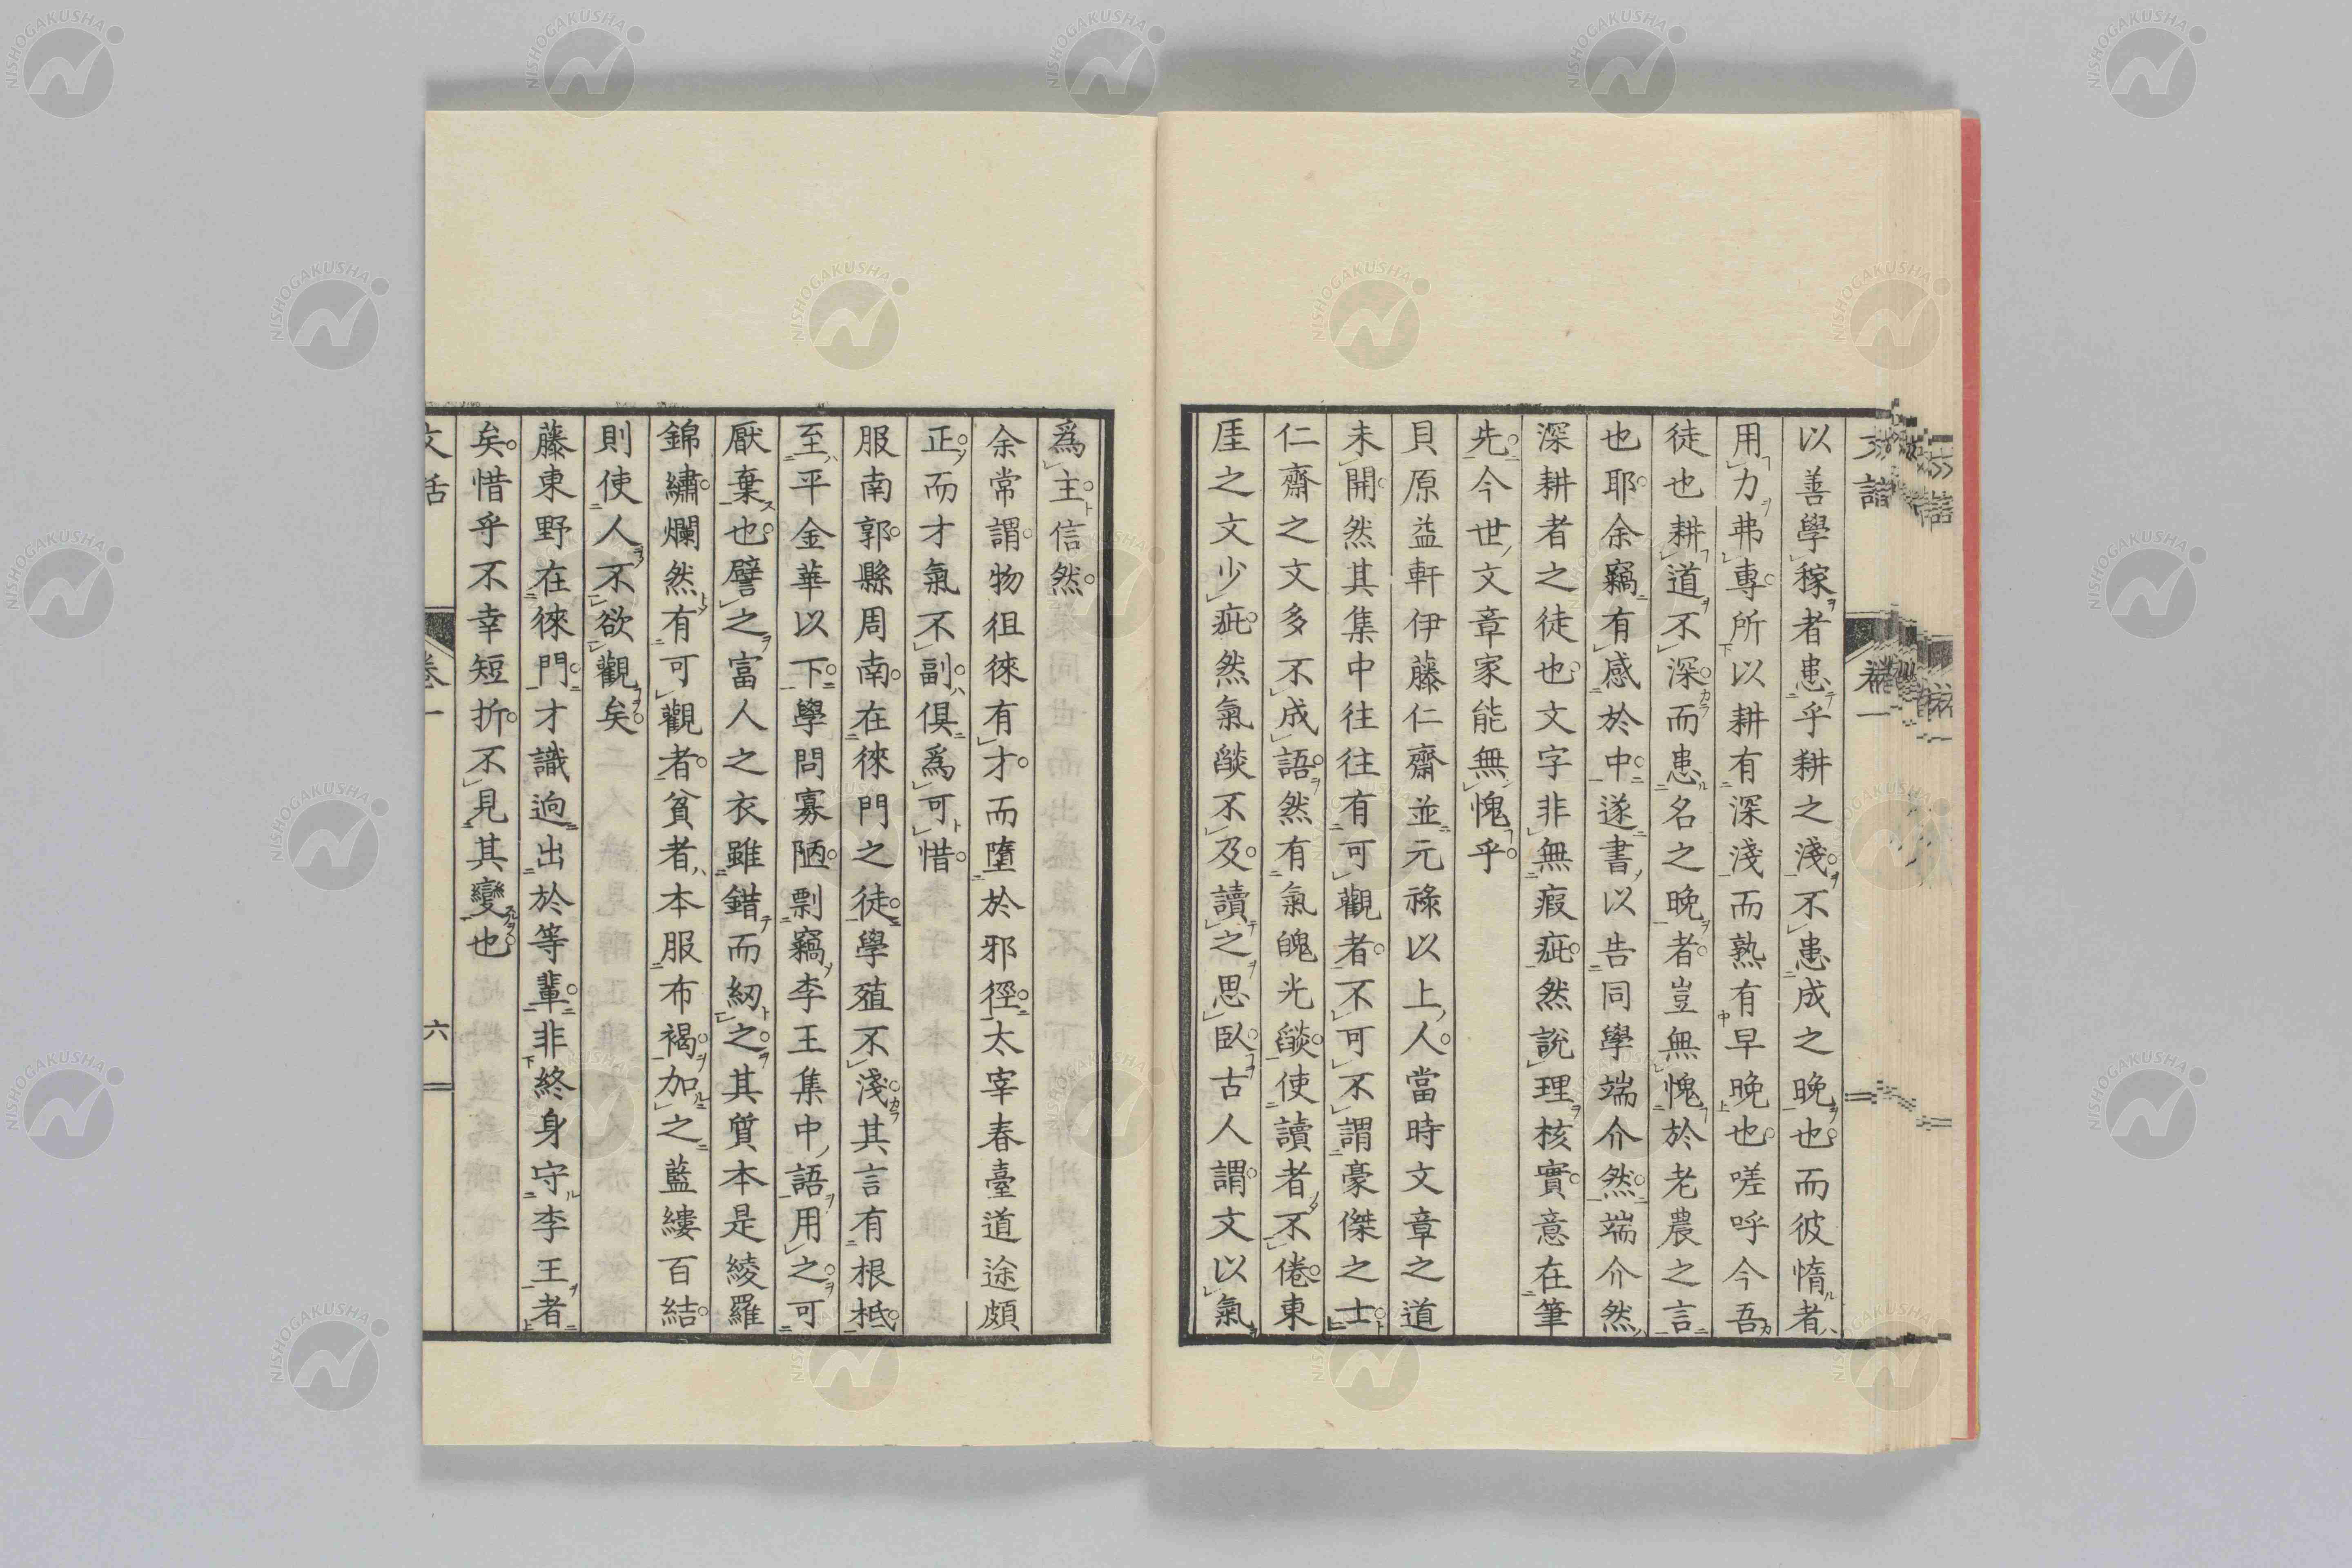 以善學稼者患乎耕之淺不患成之晩也而彼惰者
用力弗專所以耕有深淺而熟有早晩也嗟呼今吾
徒也耕道不深而患名之晩者豈無愧於老農之言
也耶余竊有感於中遂書以告同學端介然端介然
深耕者之徒也文字非無瑕疵然說理核實意在筆
先今世文章家能無愧乎
貝原益軒伊藤仁齋並元祿以上人當時文章之道
未開然其集中往往有可觀者不可不謂豪傑之士
仁齋之文多不成語然有氣魄光燄使讀者不倦東
厓之文少疵然氣燄不及讀之思臥古人謂文以氣
爲主信然
余常謂物徂徠有才而墮於邪徑太宰春臺道途頗
正而才氣不副俱爲可惜
服南郭縣周南在徠門之徒學殖不淺其言有根柢
至平金華以下學問寡陋剽竊李王集中語用之可
厭棄也譬之富人之衣雖錯而紉之其質本是綾羅
錦繡爛然有可觀者貧者本服布褐加之藍縷百結
則使人不欲觀矣
藤東野在徠門才識逈出於等輩非終身守李王者
矣惜乎不幸短折不見其變也
文話 卷一 六
NISHOGAKUSHA